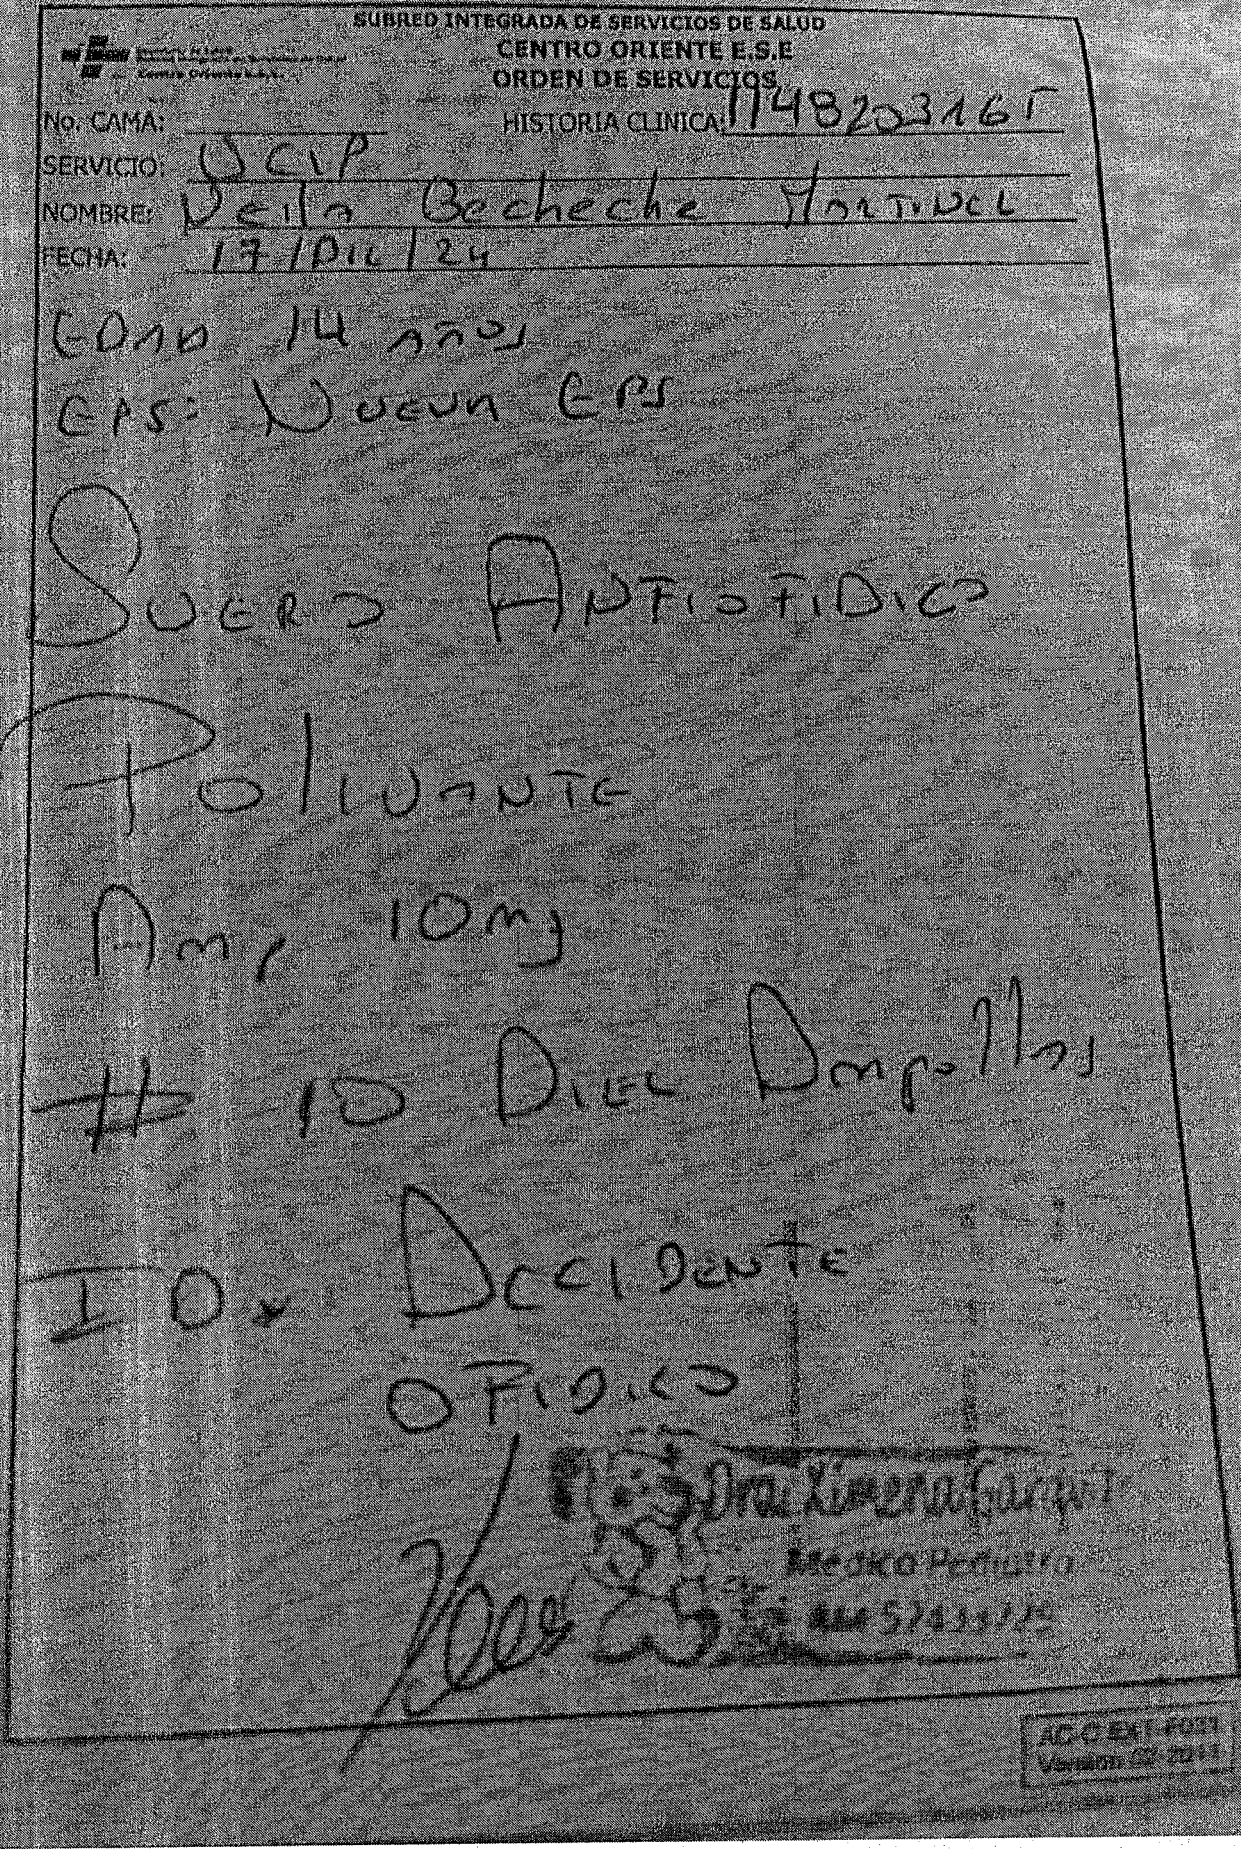 SUBRED INTEGRADA DE SERVICIOS DE SALUD
CENTRO ORIENTE E.S.E
ORDEN DE SERVICIOS
Centro Oriente E.S.E.
No. CAMA:
HISTORIA CLINICA: 1148203165
SERVICIO: UCIP
NOMBRE: Neila Becheche Martinez
FECHA: 17/Dic/24
EDAD 14 años
EPS: Nueva EPS
Suero Antiofidico
Polivante
Amp 10mg
# 10 Diez Ampollas
IDx Accidente
Ofidico
Dra. Ximena
Médico Pediatra
AC-C EXT-F031
Version 02-2011